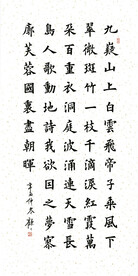 九嶷山上白雲飛帝子乘風下
翠微斑竹一枝千滴淚紅霞萬
朵百重衣洞庭波涌連天雪長
島人歌動地詩我欲因之夢寥
廓芙蓉國裏盡朝暉